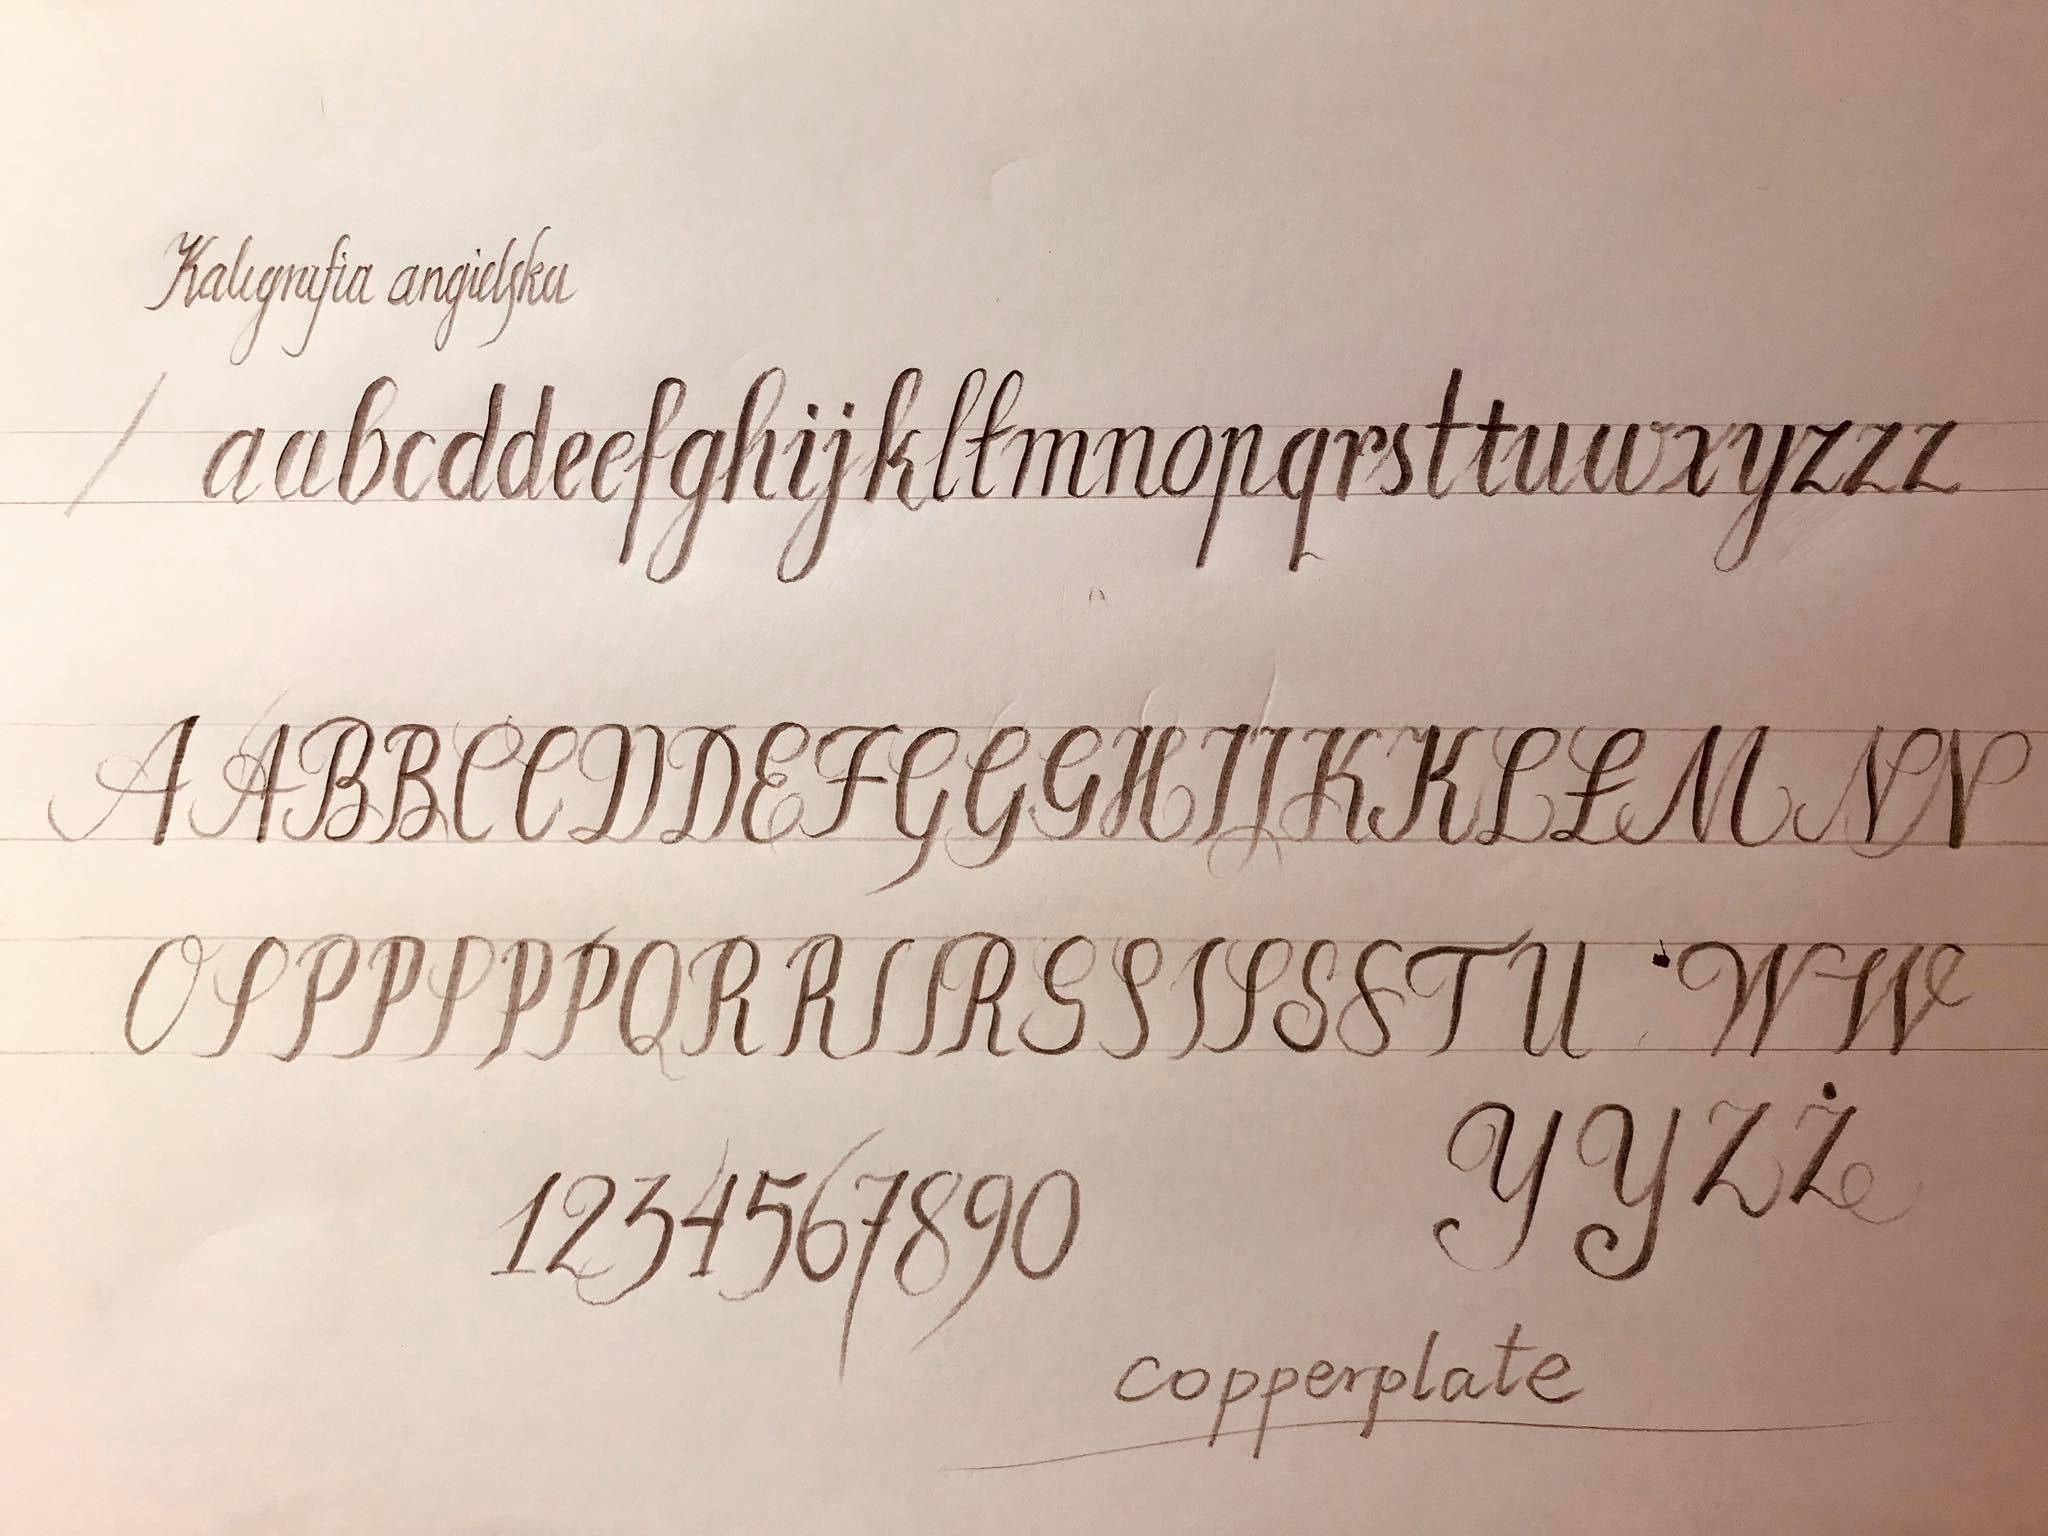 Kaligrafia angielska
aabcddeefghijklłmnopqrsttuwxyzzz
AABBCCDDEFGGGHIJKKLŁMNN
OPPPPPQRRRSSSSSTU WW
YYZŻ
1234567890
copperplate